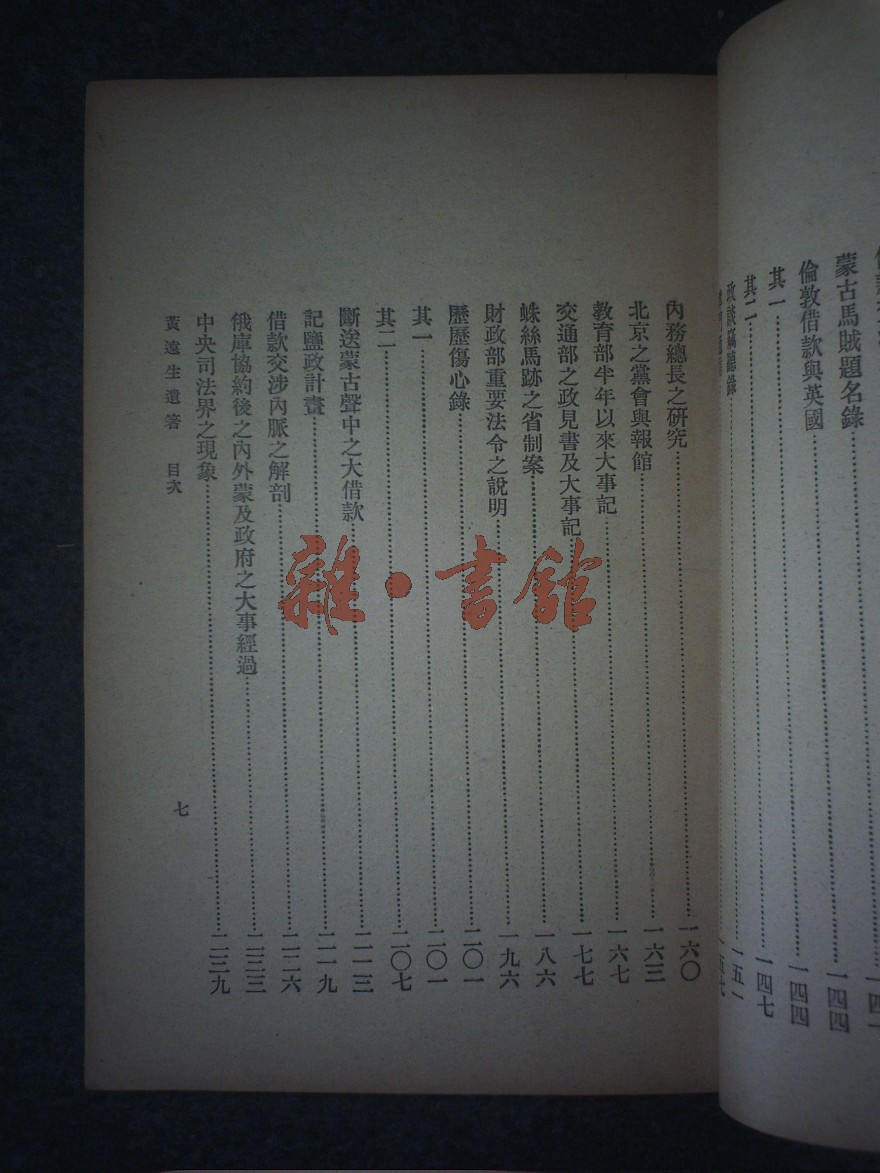 蒙古馬賊題名錄…………一四四
倫敦借款與英國…………一四四
其一…………一四七
其二…………一五一
內務總長之研究…………一六〇
北京之黨會與報館…………一六三
教育部半年以來大事記…………一六七
交通部之政見書及大事記…………一七七
蛛絲馬跡之省制案…………一八六
財政部重要法令之說明…………一九六
歷歷傷心錄…………二〇一
其一…………二〇一
其二…………二〇七
斷送蒙古聲中之大借款…………二一三
記鹽政計畫…………二一九
借款交涉內脈之解剖…………二二六
俄庫協約後之內外蒙及政府之大事經過…………二三三
中央司法界之現象…………二三九
黃遠生遺著 目次 七
雜·書館